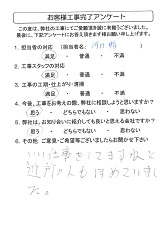 お客様工事完了アンケート
この度は、弊社の工事にてご愛顧頂き誠に有難うございました。
最後に、下記アンケートにお答え頂きます様お願い申し上げます。
1. 担当者の対応 (担当者名: )
満足 ・ 普通 ・ 不満
2. 工事スタッフの対応
満足 ・ 普通 ・ 不満
3. 工事の工期・仕上がり・清掃
満足 ・ 普通 ・ 不満
4. 今後、工事をお考えの際、弊社に相談しようと思いますか?
思う ・ どちらでもない ・ 思わない
5. 弊社は、お知り合いに紹介しても良いと思える会社ですか?
思う ・ どちらでもない ・ 思わない
6. その他 ご意見・ご希望等ございましたらお聞かせ下さい
いい仕事をしてますねと
近所の人もほめていまし
た。